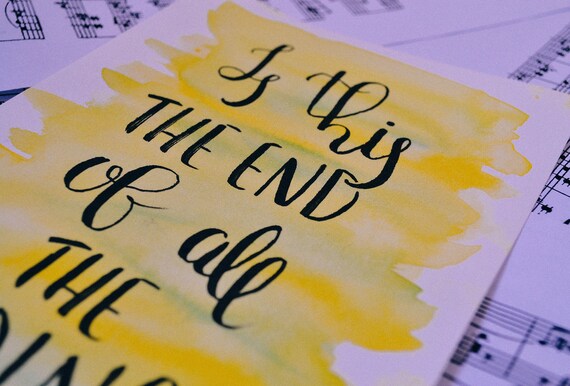 Is this
THE END
of all
THE